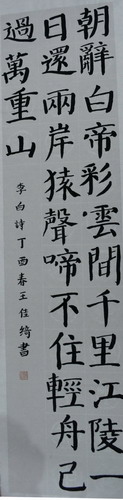 朝辭白帝彩雲間千里江陵一
日還兩岸猿聲啼不住輕舟已
過萬重山
李白詩丁酉春王佳綺書